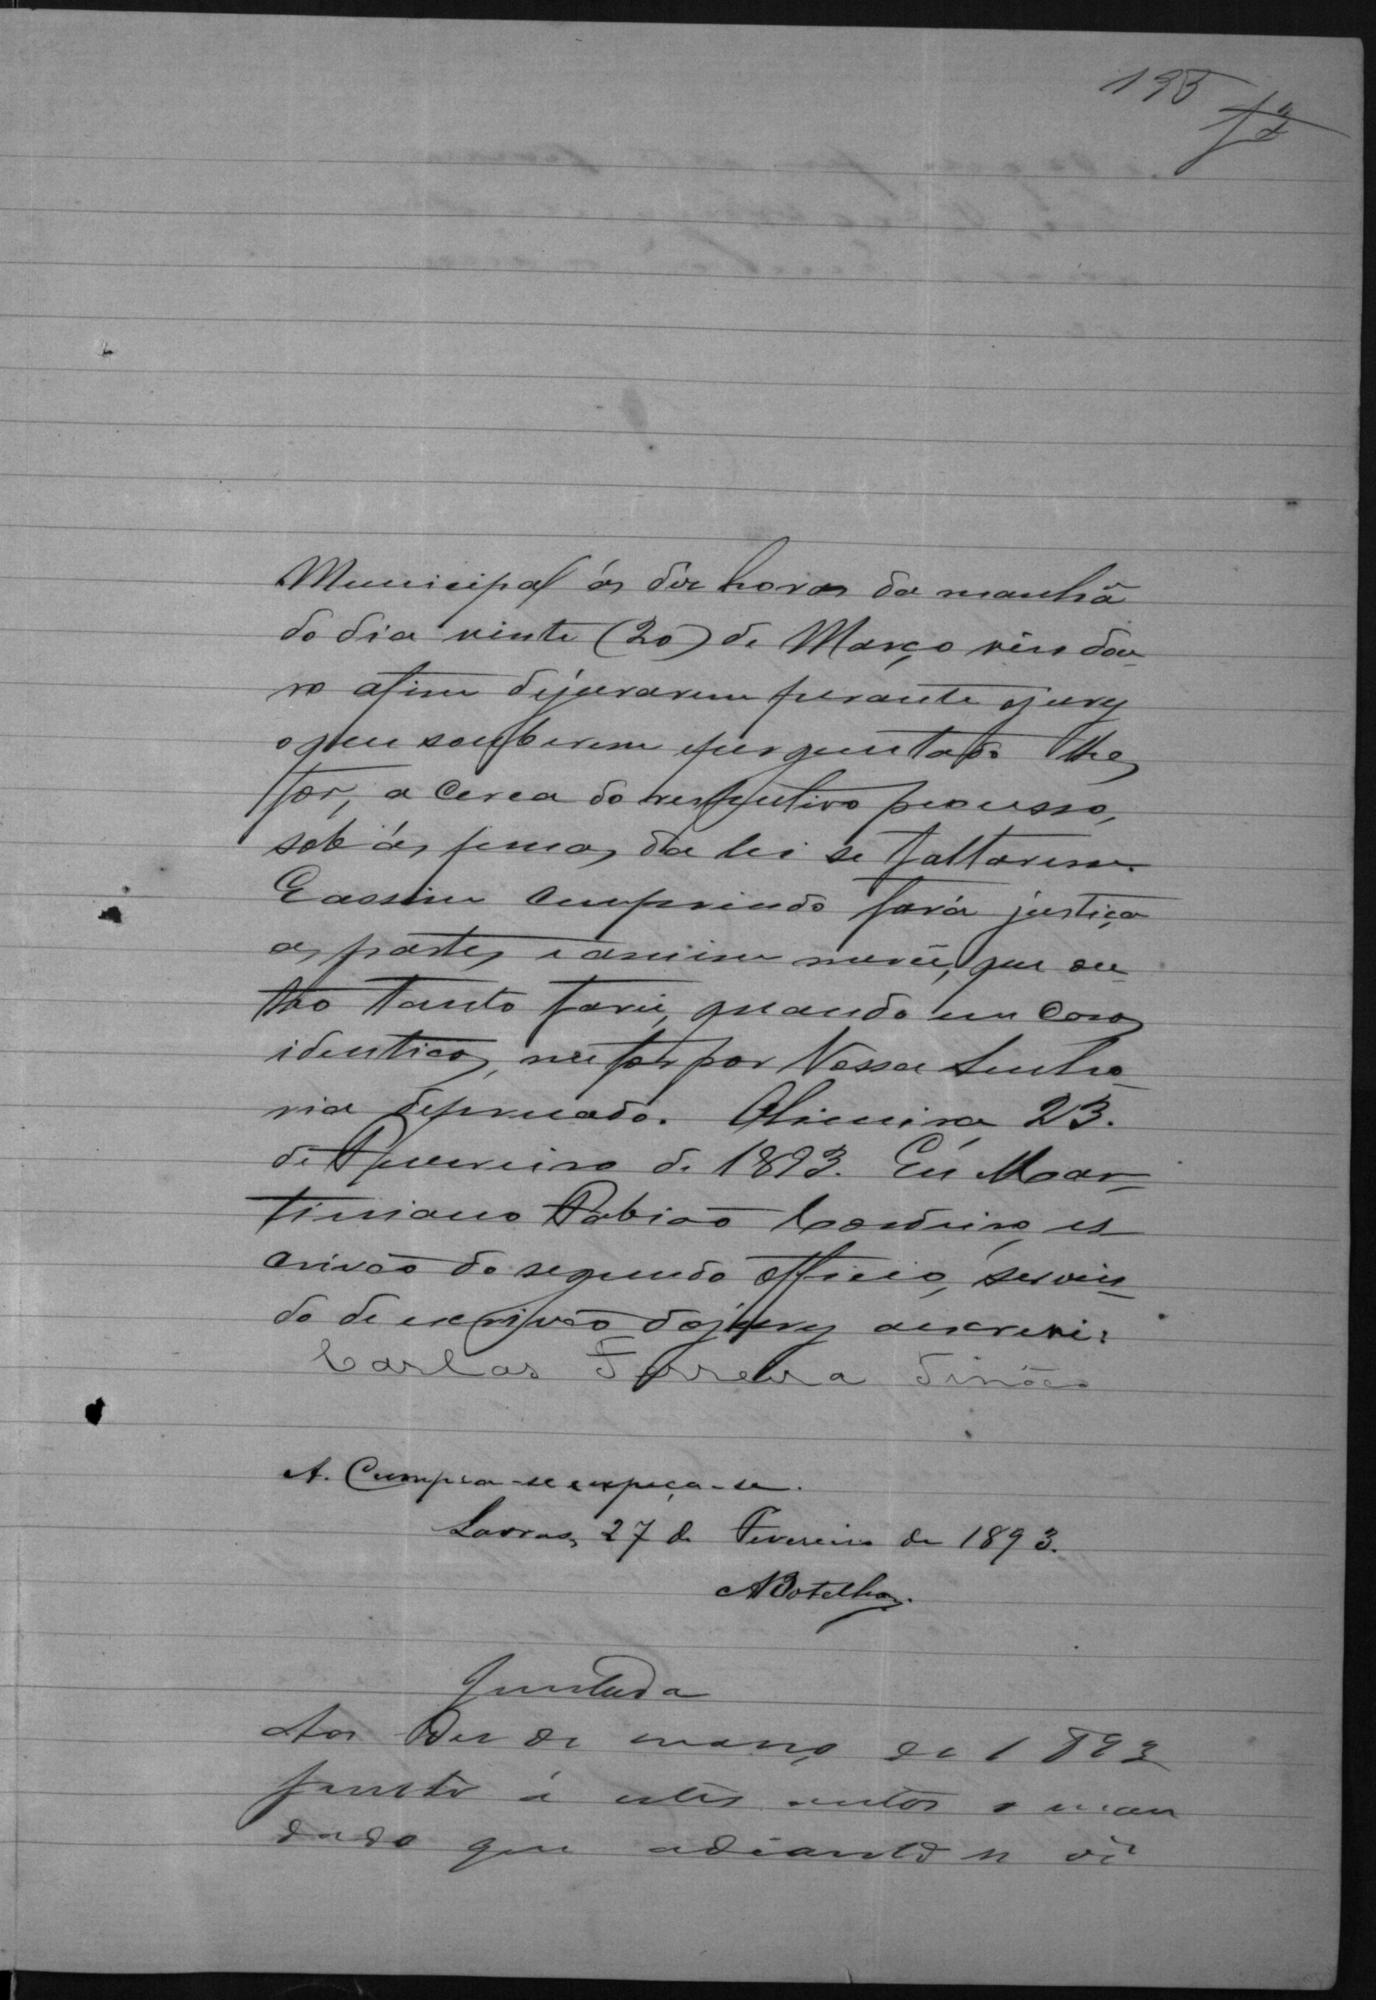 195
Municipal ás dez horas da manhã
do dia vinte (20) de Março vindou-
ro afim dejurarem perante ojury
oque souberem eperguntado lhes
for, a cerca do respectivo processo,
sob ás penas da lei se faltarem.
Eassim cumprindo fará justiça
as partes eamim mercê, que ou-
tro tanto farei, quando em casos
identicos, me for por Vossa Senho-
ria deprecado. Oliveira 23.
de Fevereiro de 1893. Eu Mar-
timiano Fabião Cordeiro, es
crivão do segundo officio, servin-
do de escrivão dojury aescrevi.
Carlos Ferreira
A. Cumpra-se e expeça-se.
Lavras, 27 de Fevereiro de 1893.
ABotelho.
Juntada
Aos Dez de março de 1893
junto á estes autos o man
dado que adiante se vê